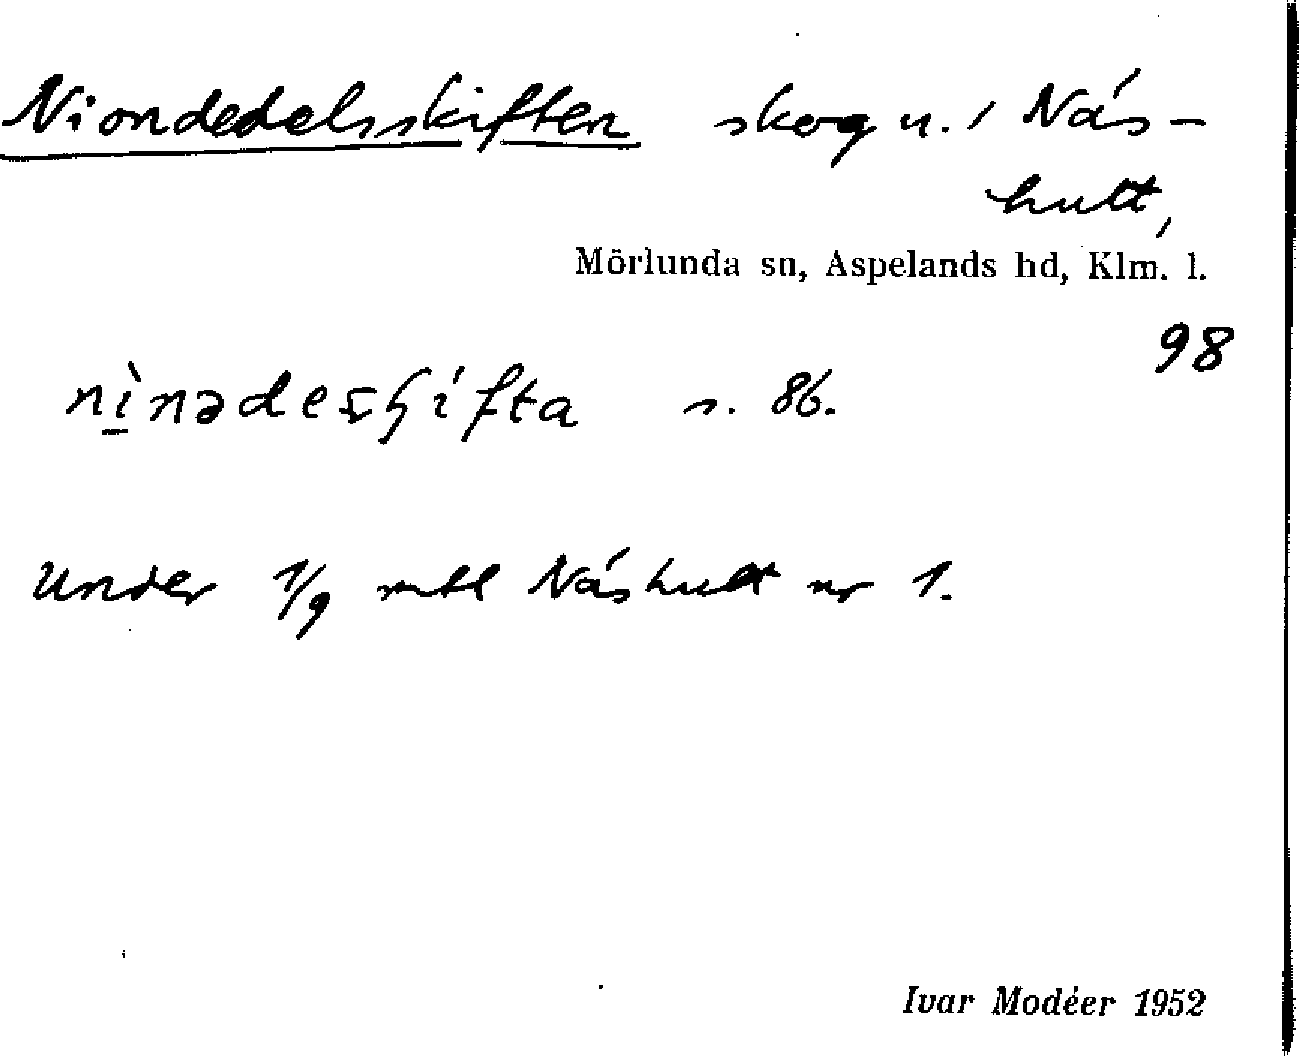 Niondedelsskiften skog u. / Nås-
hult,
Mörlunda sn, Aspelands hd, Klm. l.
98
nìnədesɧifta s. 86.
Under 1/9 mtl Nåshult nr 1.
Ivar Modéer 1952